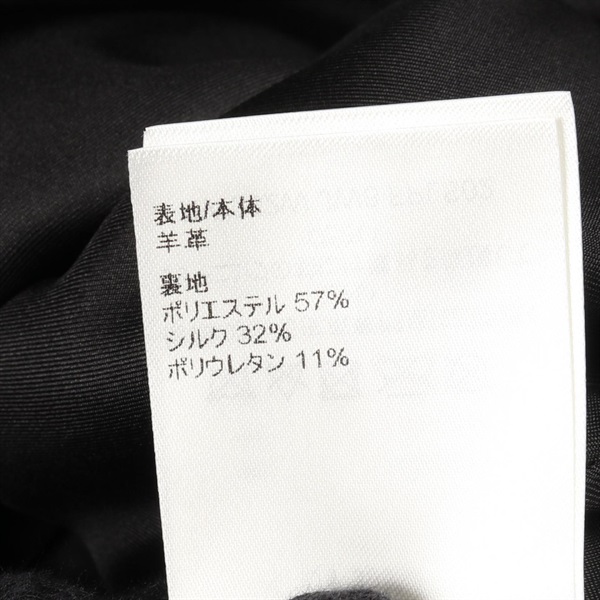 表地/本体
羊革
裏地
ポリエステル 57%
シルク 32%
ポリウレタン 11%